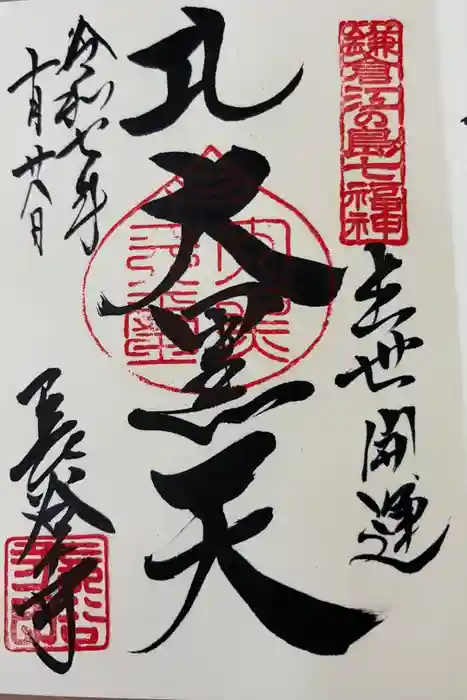 鎌倉江の島七福神
出世開運
大黒天
令和七年
十月廿八日
長谷寺